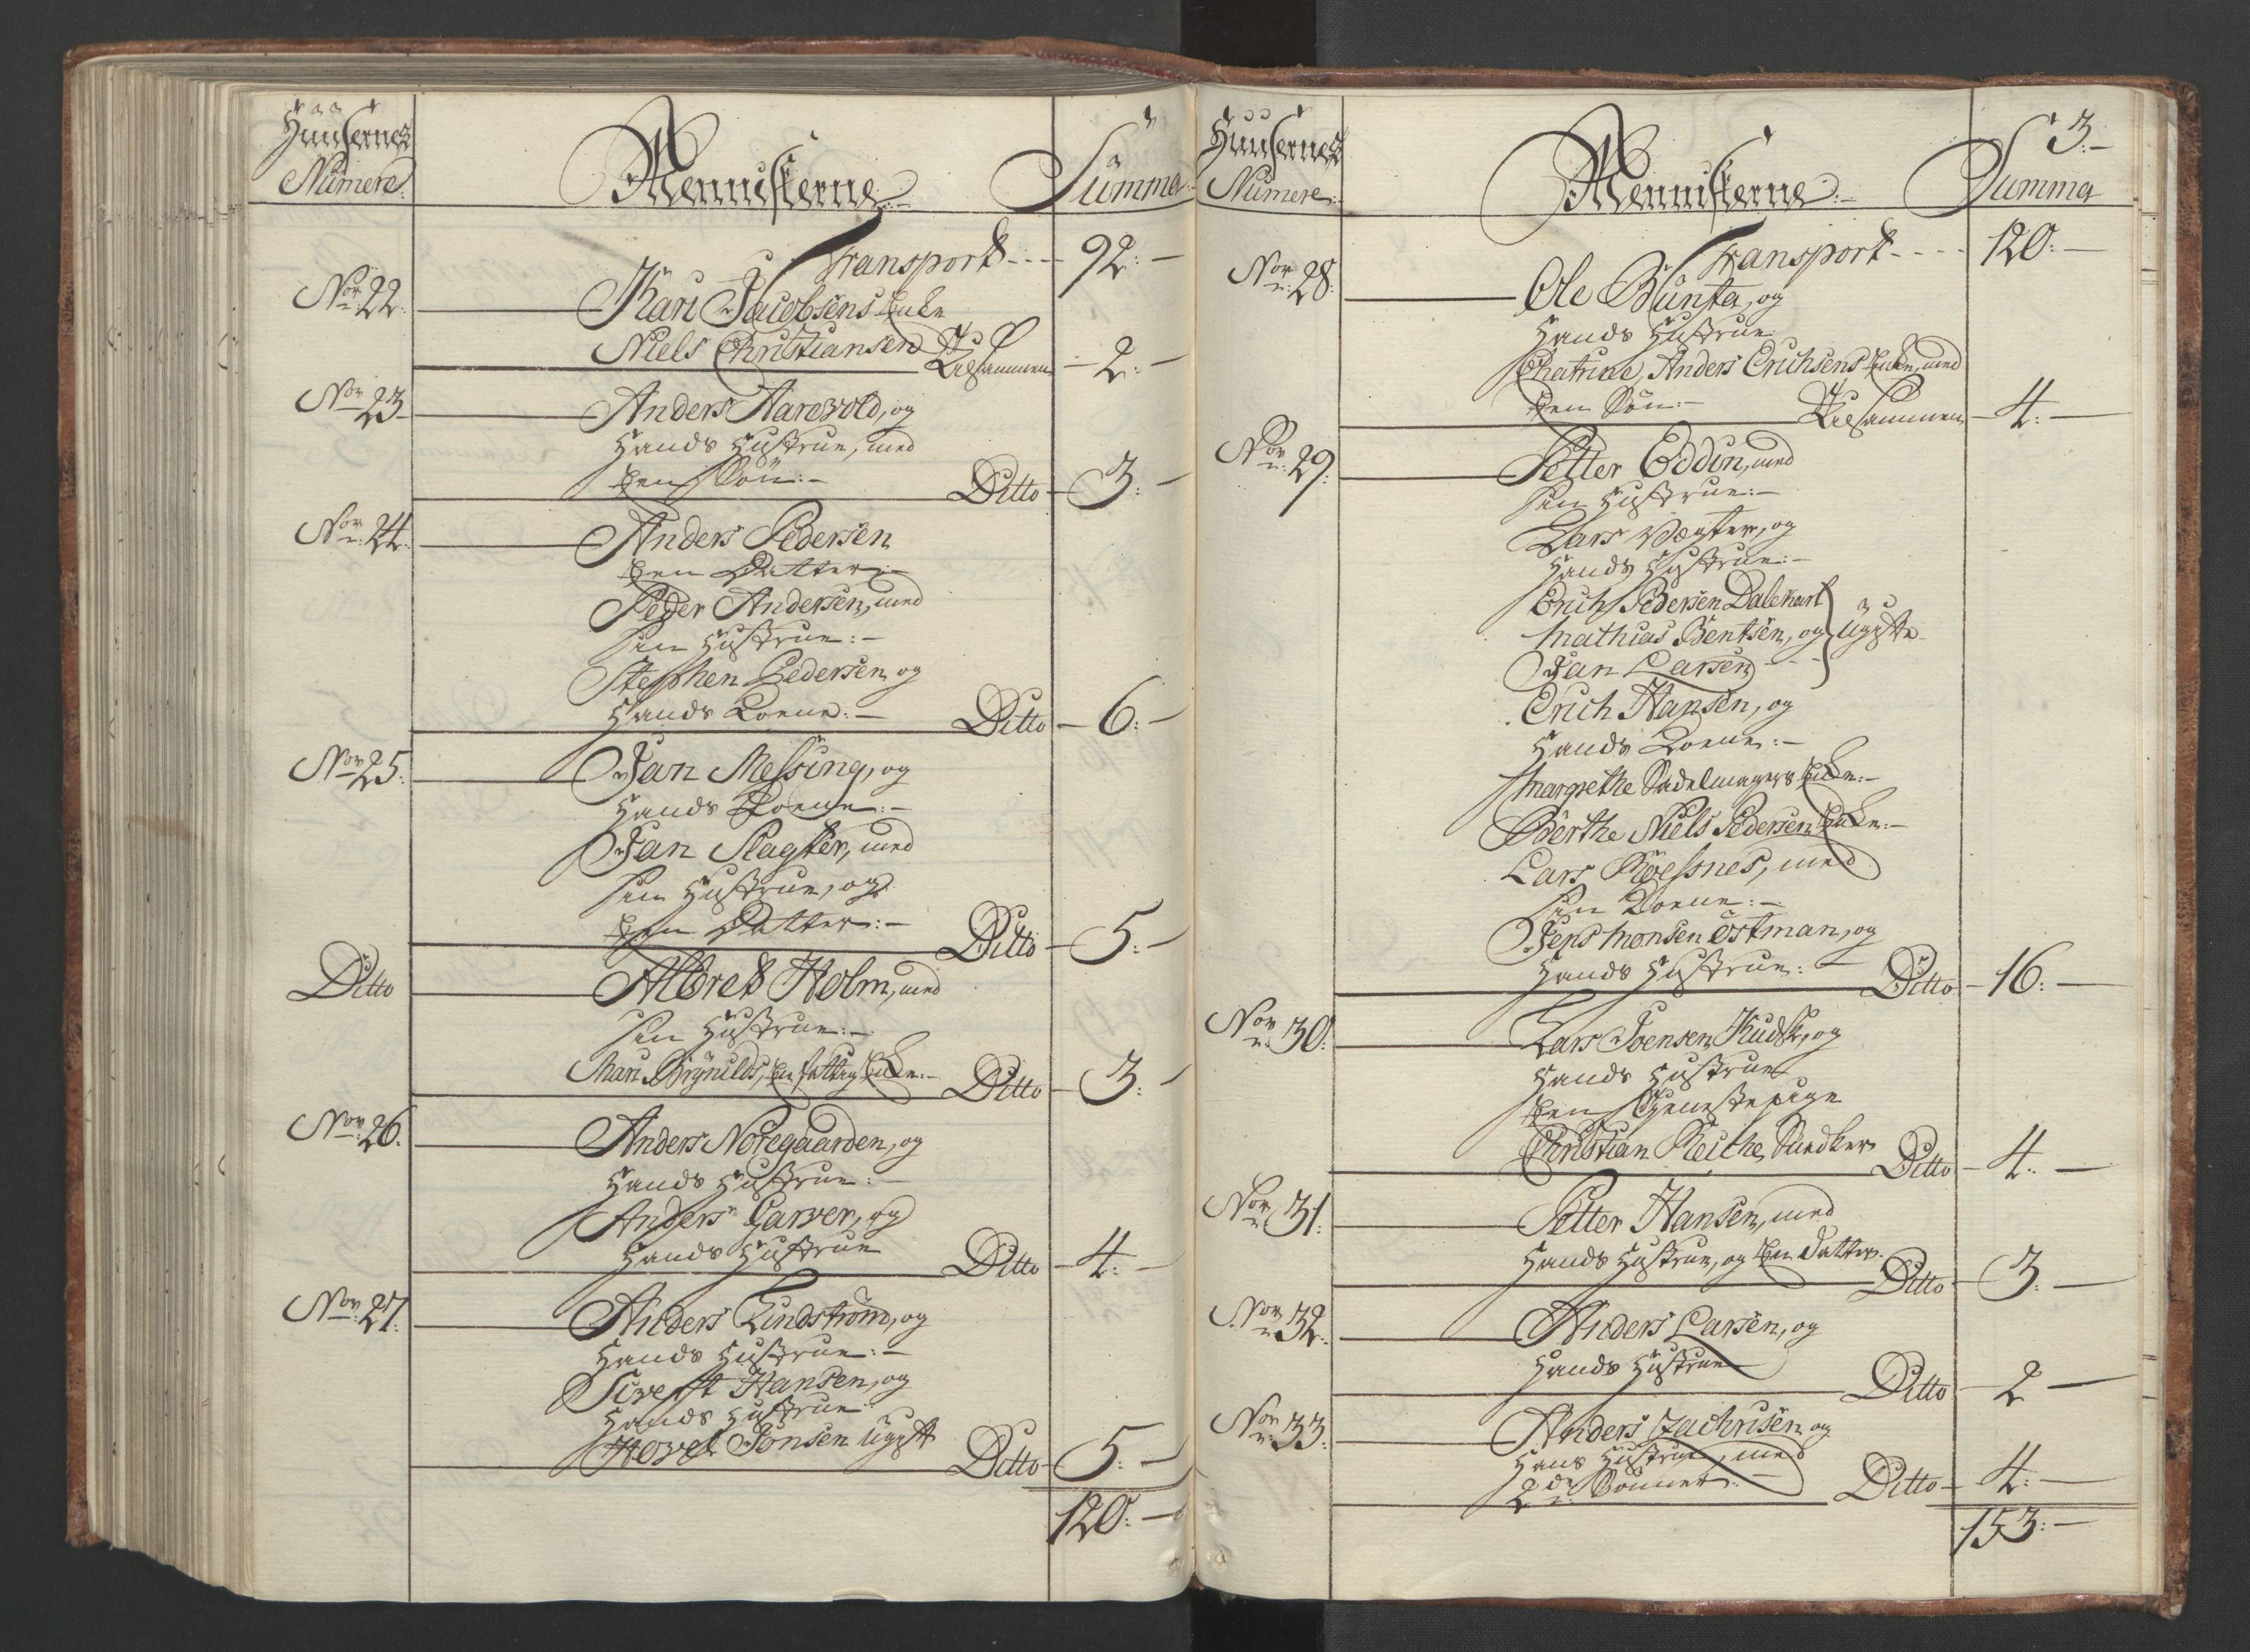 Huusernes
Numere.
Menniskerne:
Summa
Transport
92:
Nor 22.
Kari Jacobsens Enke
Niels Christiansen
Tilsammen
2:
Nor 23
Anders Aarevold, og
Hands Hustrue, med
Een Søn:
Ditto
3:
Nor 24.
Anders Pedersen
Een Datter:
Peder Andersen, med
sin Hustrue:
Stephen Pedersen og
Hands Kone:
Ditto
6:
Nor 25:
Jan Messing, og
Hands Kone:
Jan Slagter, med
sin Hustrue, og
Een Datter:
Ditto
5:
Ditto
Albret Holm, med
sin Hustrue:
Mari Brynilds, En fattig Enke:
Ditto
3:
Nor 26.
Anders Noregaarden, og
Hands Hustrue:
Anders Garver, og
Hands Hustrue
Ditto
4:
Nor 27.
Anders Lindstrøm, og
Hands Hustrue:
Hansen, og
Hands Hustrue
Jonsen Ugift
Ditto
5:
120:
3:
Huusernes
Numere:
Menniskerne:
Summa
Transport
120:
Nor 28:
Ole Bunta, og
Hands Hustrue
Chatrine, Anders Erichsens Enke, med
Een Søn:
Tilsammen
4:
Nor 29:
Petter Eddin, med
sin Hustrue:
Lars Vægter, og
Hands Hustrue:
Erich Pedersen Dalekarl
Mathias Bentsen, og
Ugifte
Jan Larsen
Erich Hansen, og
Hands Kone:
Margrethe Sadelmagers Enke:
Berthe Niels Pedersen Enke:
Lars med
sin Kone:
Jens Monsen Østman, og
Hands Hustrue:
Ditto
16:
Nor 30:
Lars Joensen Kudsk, og
Hands Hustrue
Een Tieneste pige
Christian Reiche, Snedker
Ditto
4:
Nor 31:
Petter Hansen, med
Hands Hustrue, og Een Datter.
Ditto
3:
Nor 32:
Anders Larsen, og
Hands Hustrue
Ditto
2
Nor 33:
Anders Zachrisen og
Hans Hustrue, med
2de Sønner:
Ditto
4:
153: